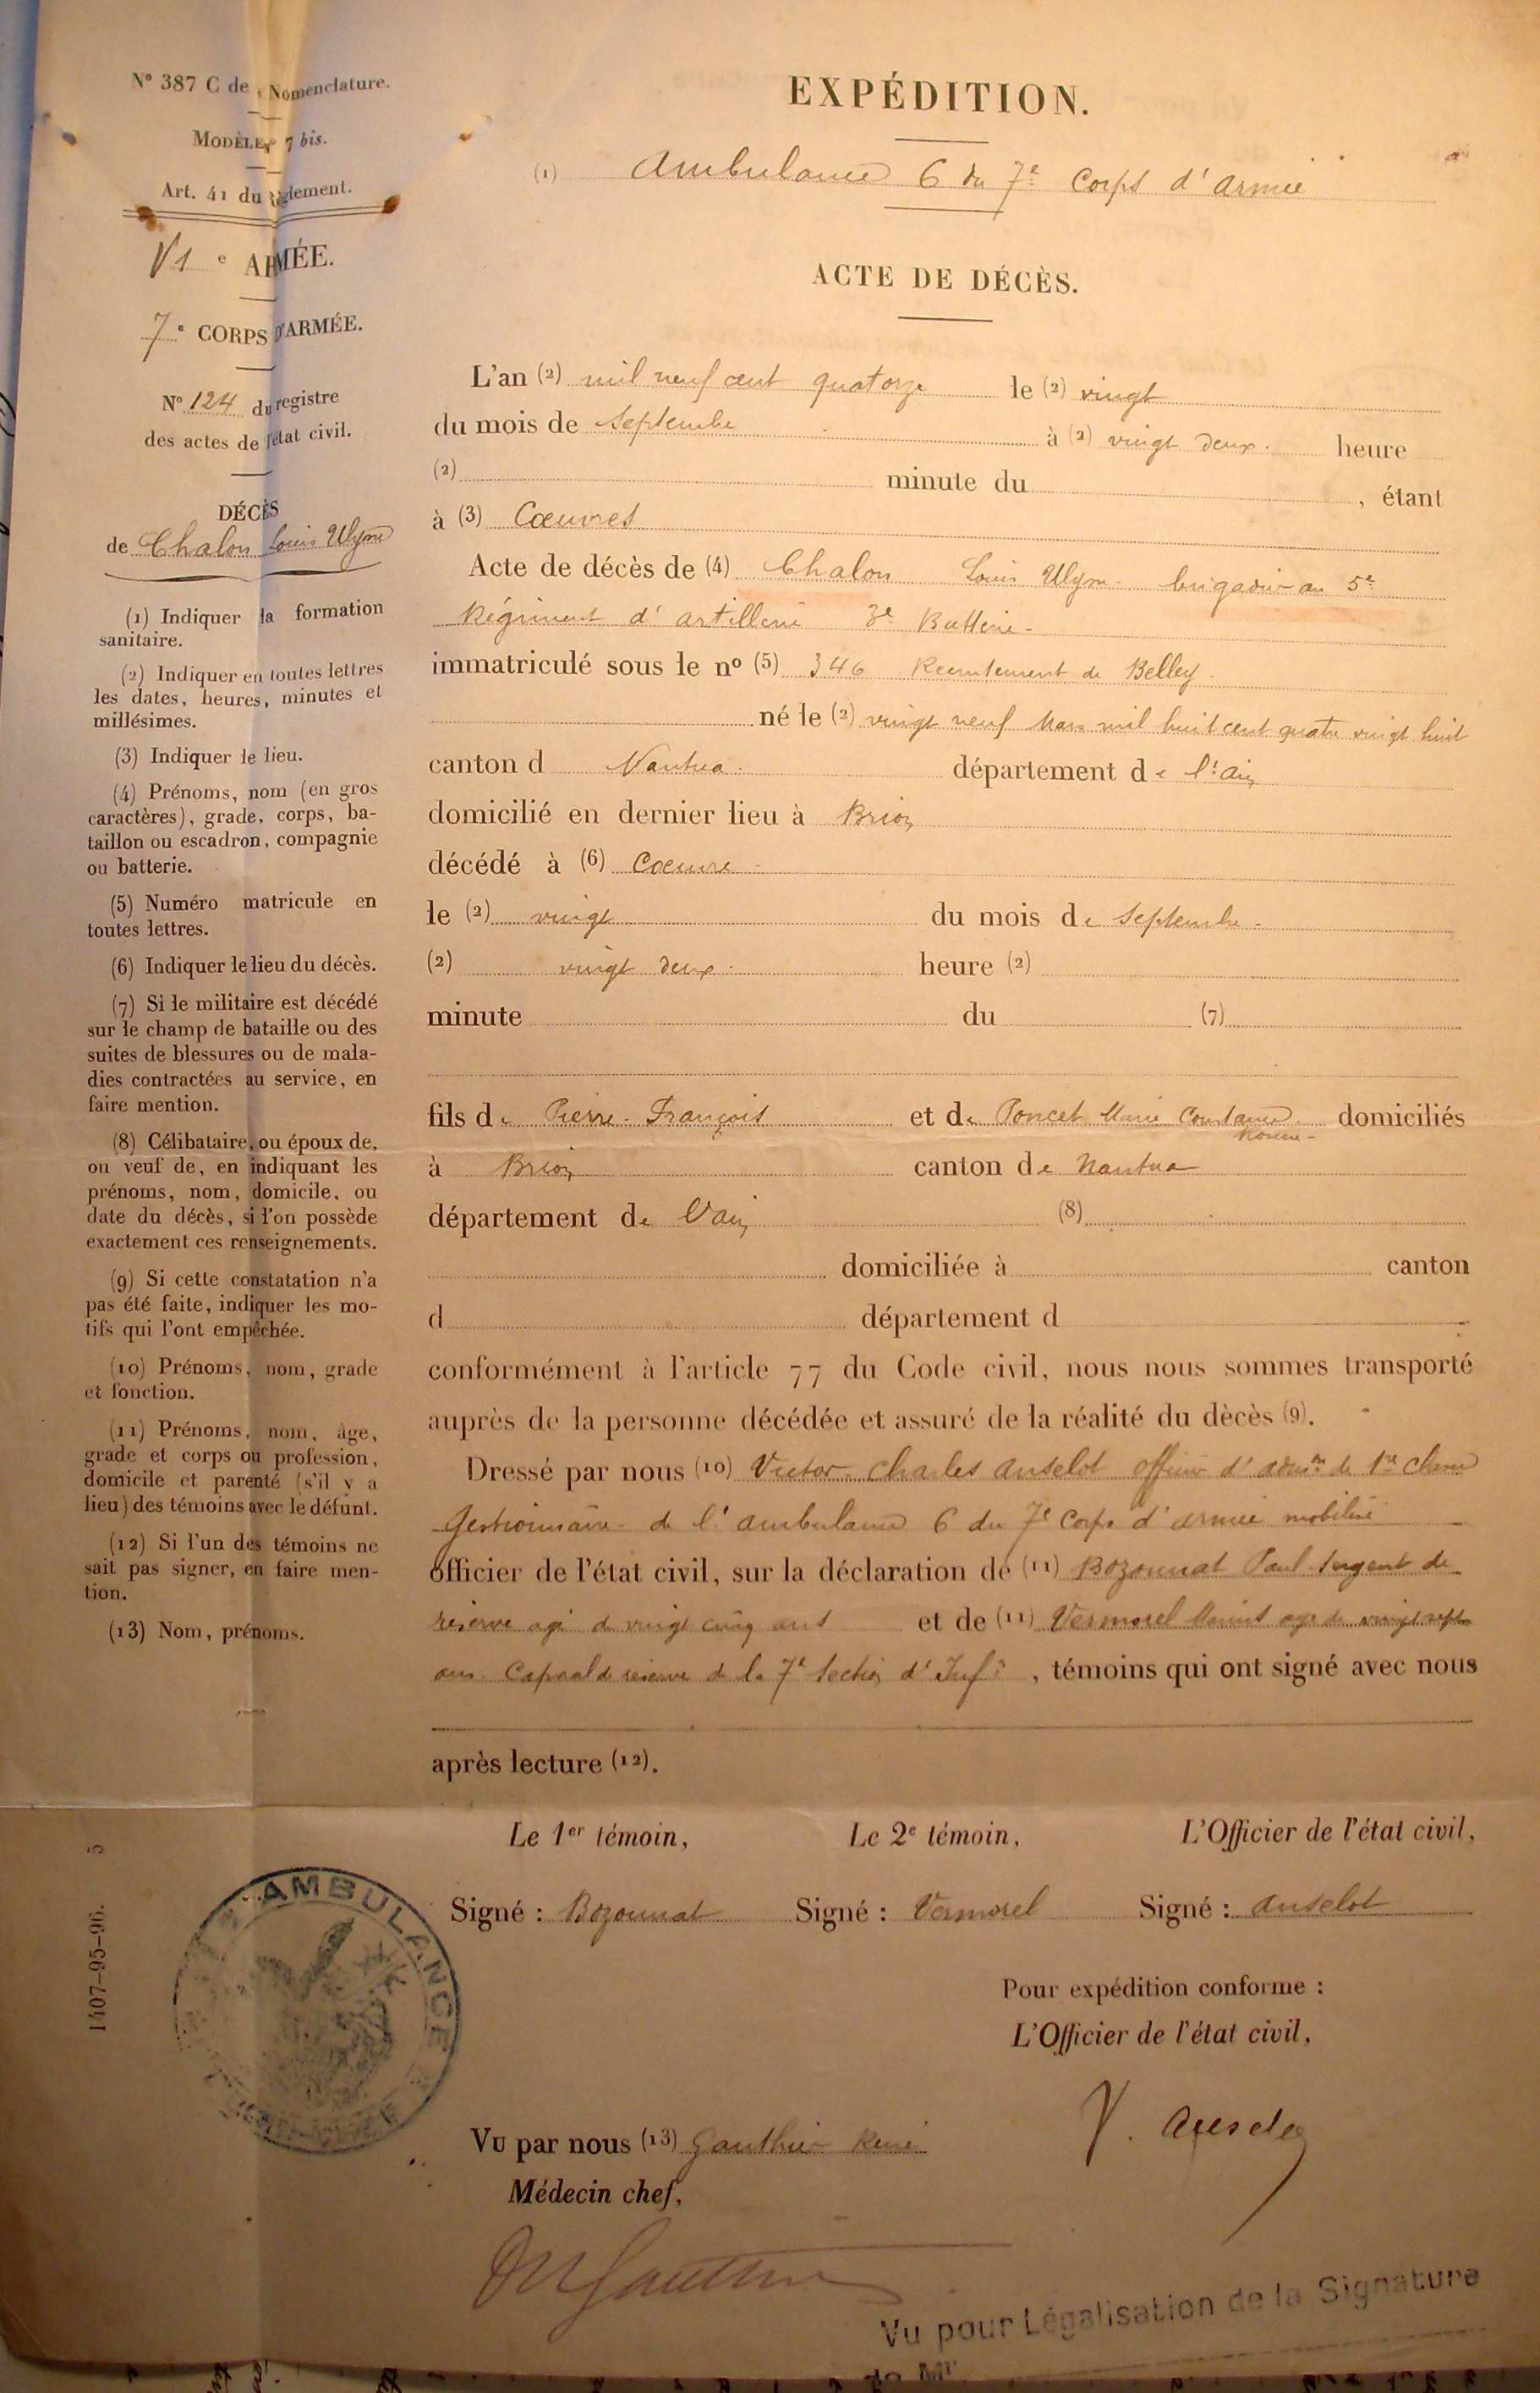 N° 387 C de Nomenclature.
MODÈLE N° 7 bis.
Art. 41 du règlement.
VI e ARMÉE.
7e CORPS D'ARMÉE.
N° 124 du registre
des actes de l'état civil.
DÉCÈS
de Chalon Louis Ulysse
(1) Indiquer la formation
sanitaire.
(2) Indiquer en toutes lettres
les dates, heures, minutes et
millésimes.
(3) Indiquer le lieu.
(4) Prénoms, nom (en gros
caractères), grade, corps, ba-
taillon ou escadron, compagnie
ou batterie.
(5) Numéro matricule en
toutes lettres.
(6) Indiquer le lieu du décès.
(7) Si le militaire est décédé
sur le champ de bataille ou des
suites de blessures ou de mala-
dies contractées au service, en
faire mention.
(8) Célibataire, ou époux de,
ou veuf de, en indiquant les
prénoms, nom, domicile, ou
date du décès, si l'on possède
exactement ces renseignements.
(9) Si cette constatation n'a
pas été faite, indiquer les mo-
tifs qui l'ont empêchée.
(10) Prénoms, nom, grade
et fonction.
(11) Prénoms, nom, âge,
grade et corps ou profession,
domicile et parenté (s'il y a
lieu) des témoins avec le défunt.
(12) Si l'un des témoins ne
sait pas signer, en faire men-
tion.
(13) Nom, prénoms.
1407-95-96. 5
EXPÉDITION.
(1) Ambulance 6 du 7e Corps d'armée
ACTE DE DÉCÈS.
L'an (2) mil neuf cent quatorze le (2) vingt
du mois de Septembre à (2) vingt deux heure
(2) minute du , étant
à (3) Cœuvres
Acte de décès de (4) Chalon Louis Ulysse brigadier au 5e
Régiment d'artillerie 3e Batterie
immatriculé sous le n° (5) 346 Recrutement de Belley
né le (2) vingt neuf Mars mil huit cent quatre vingt huit
canton d Nantua département de l'Ain
domicilié en dernier lieu à Brion
décédé à (6) Cœuvre
le (2) vingt du mois de Septembre
(2) vingt deux heure (2)
minute du (7)
fils de Pierre-François et de Poncet Marie Constance domiciliés
à Brion canton de Nantua
département de l'Ain (8)
domiciliée à canton
d département d
conformément à l'article 77 du Code civil, nous nous sommes transporté
auprès de la personne décédée et assuré de la réalité du dècès (9).
Dressé par nous (10) Victor Charles Anselot officier d'admon de 1re classe
Gestionnaire de l'ambulance 6 du 7e Corps d'armée mobilisé
officier de l'état civil, sur la déclaration de (11) Bozonnat Paul Sergent de
réserve agé de vingt cinq ans et de (11) Vermorel Marius age de vingt sept
ans Caporal de réserve de la 7e Section d'Infre , témoins qui ont signé avec nous
après lecture (12).
Le 1er témoin, Le 2e témoin, L'Officier de l'état civil,
Signé : Bozonnat Signé : Vermorel Signé : Anselot
AMBULANCE
Pour expédition conforme :
L'Officier de l'état civil,
V. Anselot
Vu par nous (13) Gauthier René
Médecin chef,
Gauthier
Vu pour Légalisation de la Signature
de Mr